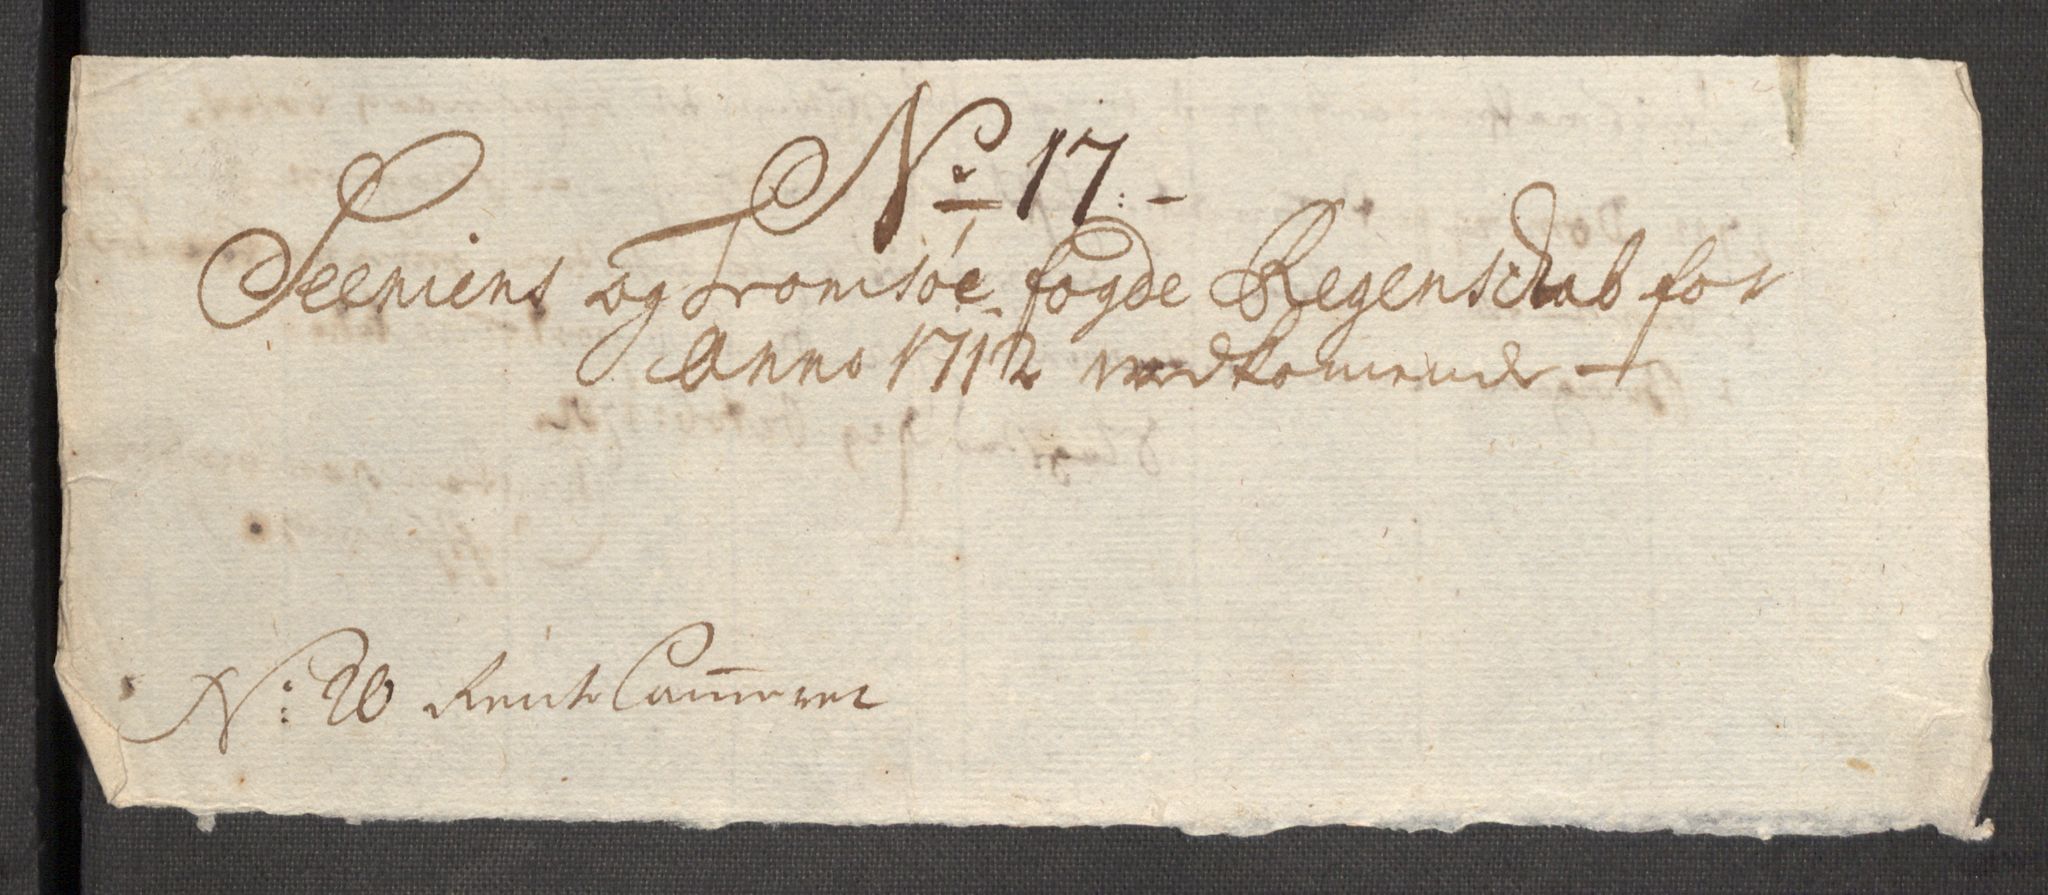 No 17. -
Seeniens og Tromsøe fogde Regenschab for
Anno 1712 vedkomende -
No: 20 Rente Cammeret